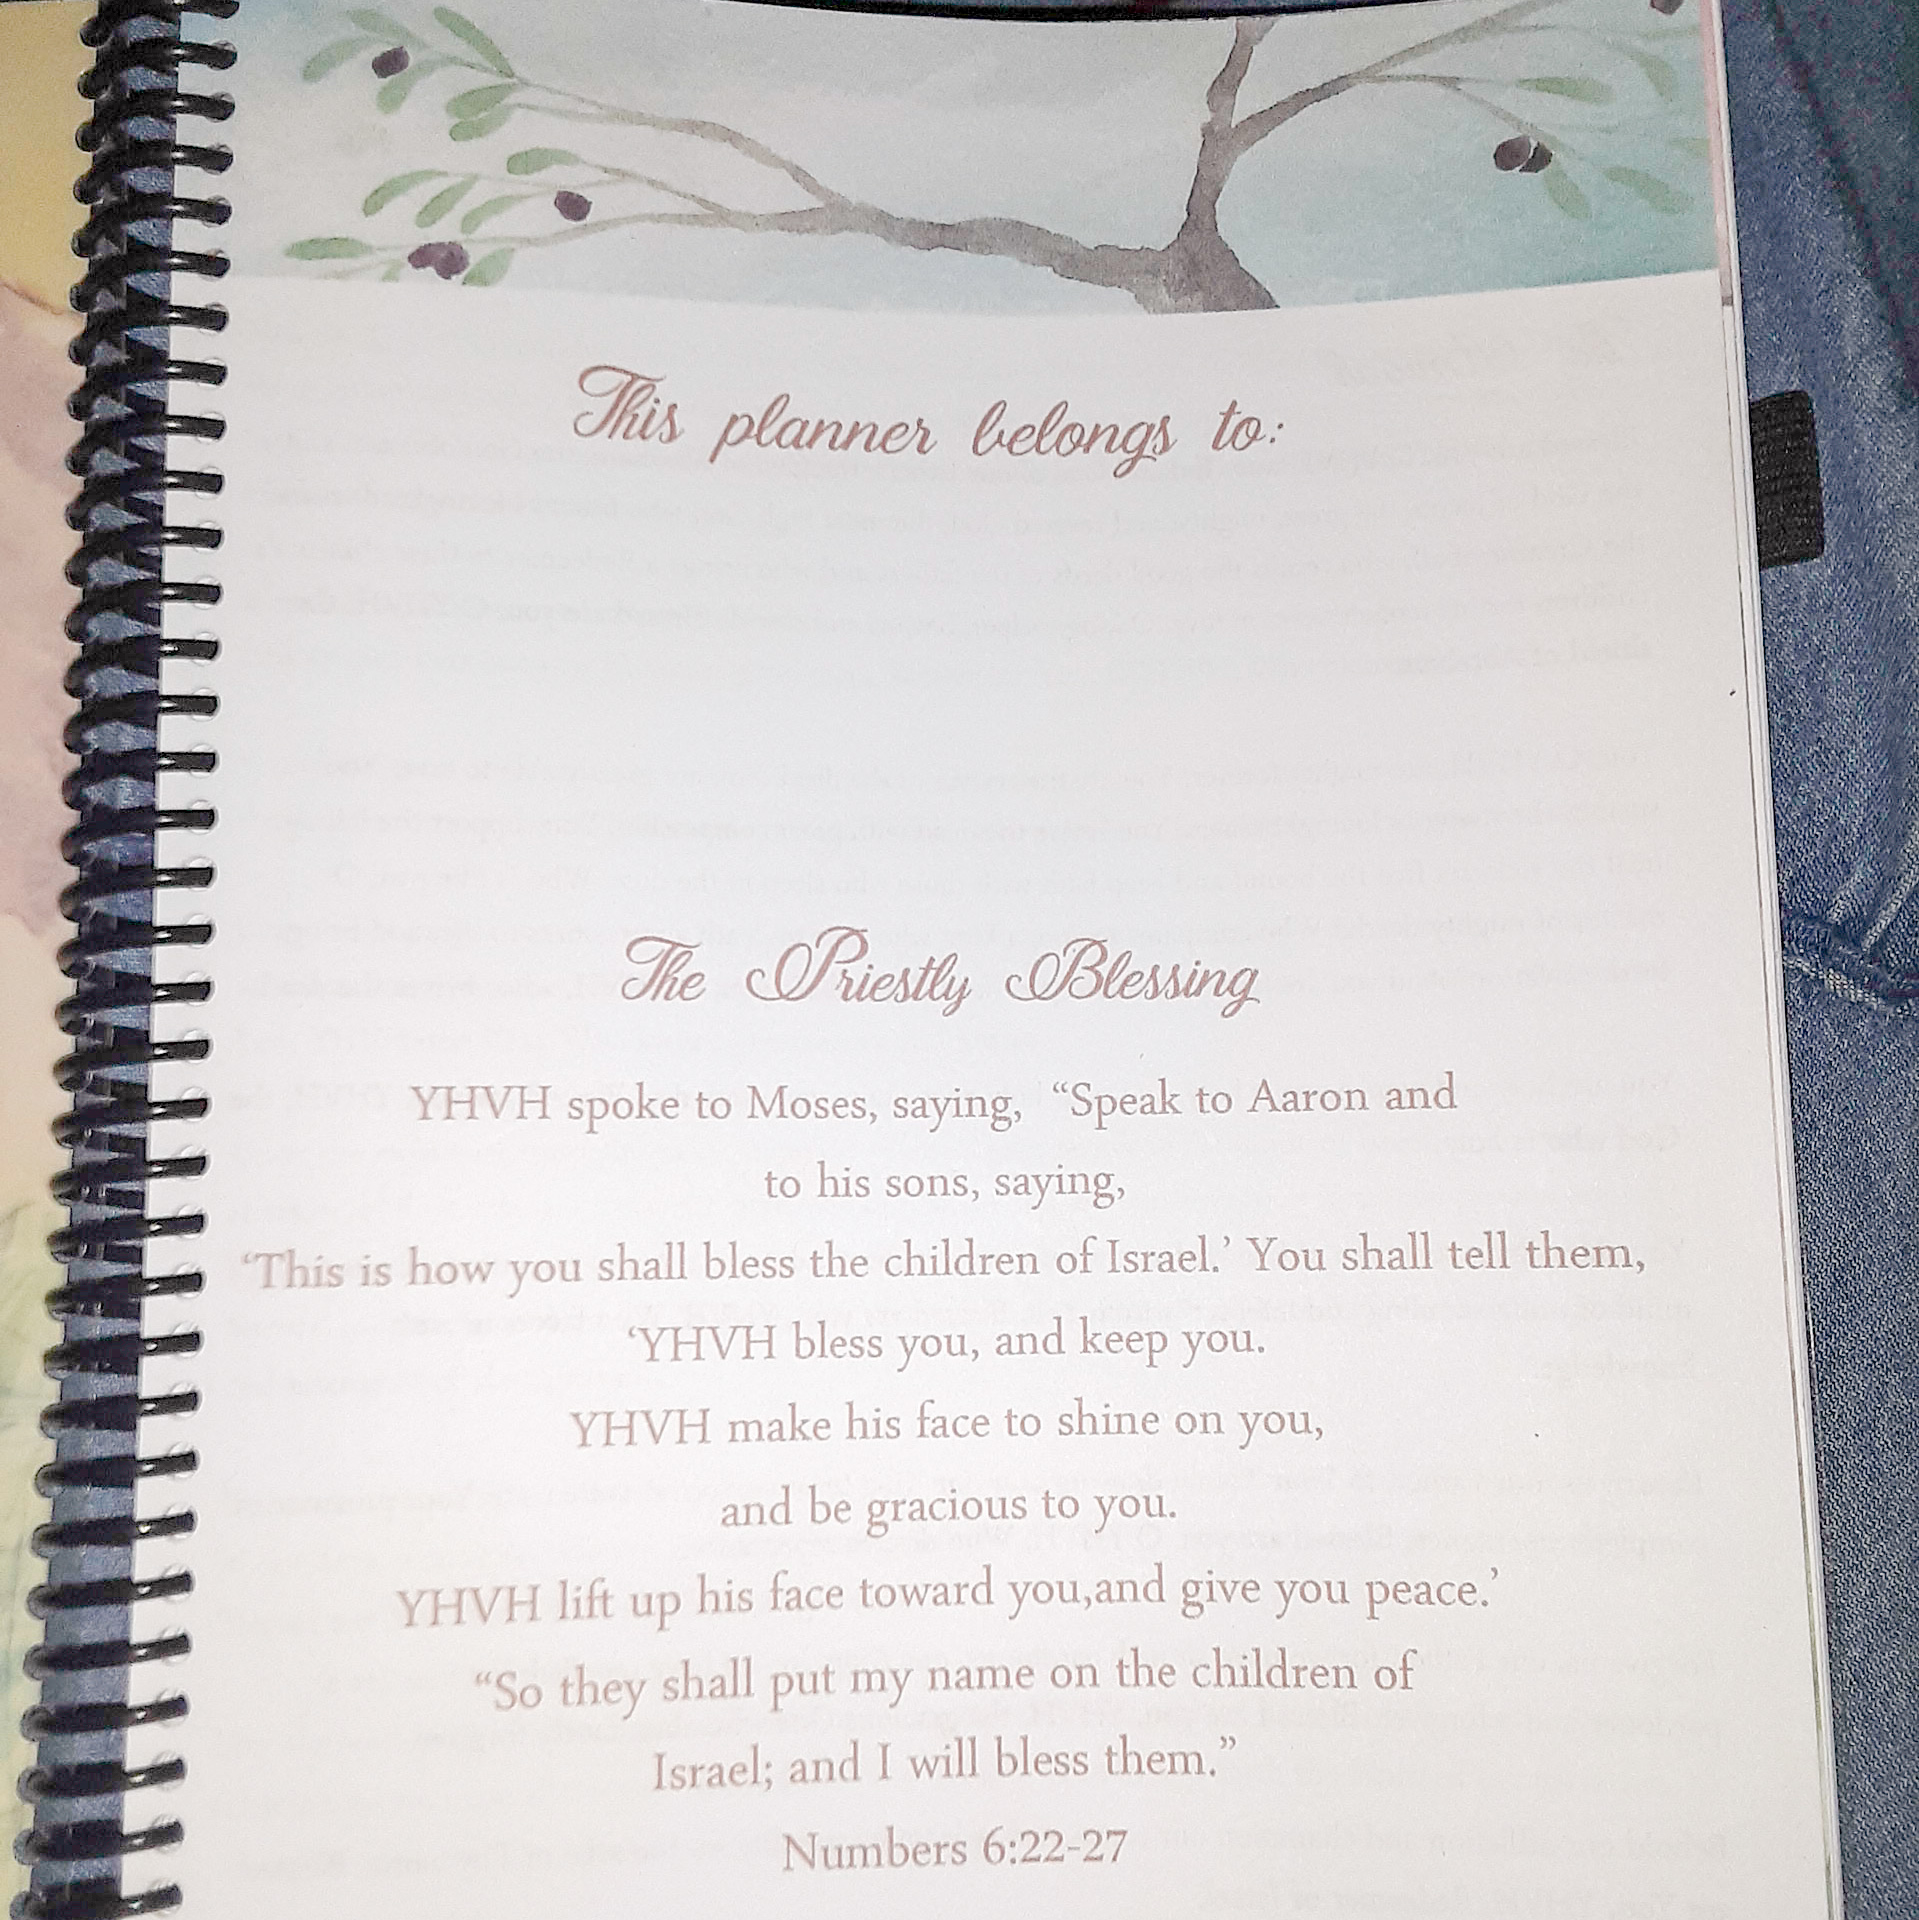 This planner belongs to:
The Priestly Blessing
YHVH spoke to Moses, saying, “Speak to Aaron and
to his sons, saying,
‘This is how you shall bless the children of Israel.’ You shall tell them,
‘YHVH bless you, and keep you.
YHVH make his face to shine on you,
and be gracious to you.
YHVH lift up his face toward you,and give you peace.’
“So they shall put my name on the children of
Israel; and I will bless them.”
Numbers 6:22-27